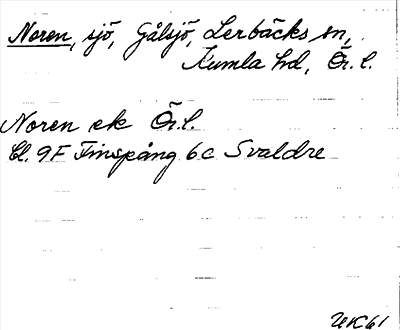 Noren, sjö, Gålsjö, Lerbäcks sn,
Kumla hd, Ör. l.
Noren ek Ör. l.
Bl. 9F Finspång 6c Svaldre
UK61